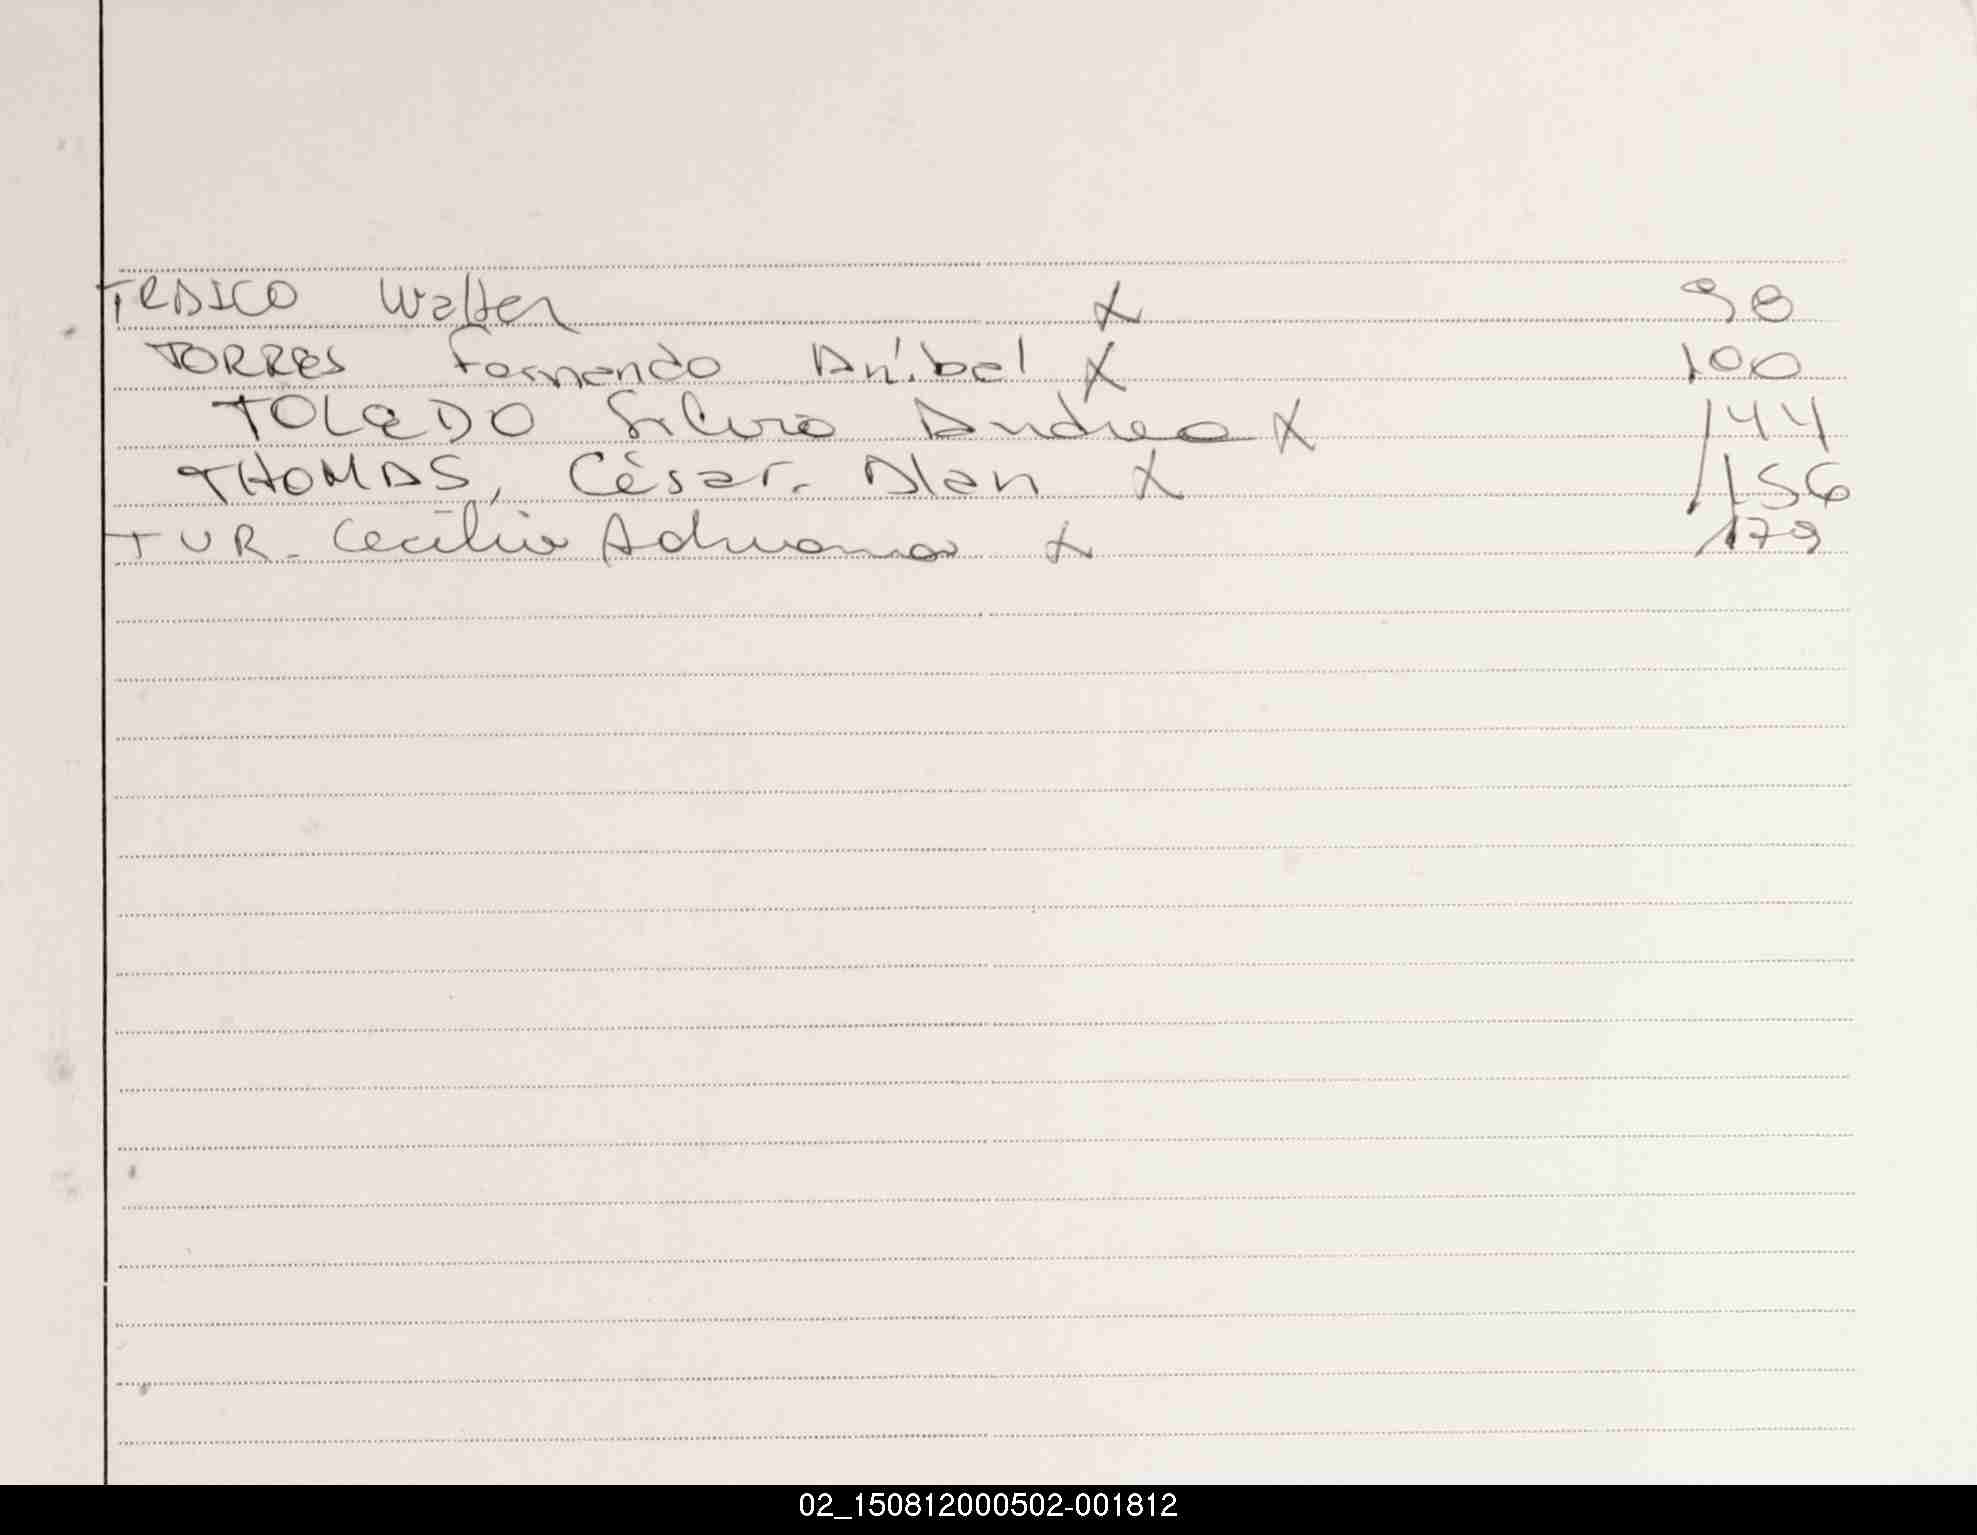 TRAICO Walter X 98
TORRES Fernando Aníbal X 100
TOLEDO Silvia Andrea X 144
THOMAS, César. Alan X 156
TUR. Cecilia Adriana X 179
02_150812000502-001812